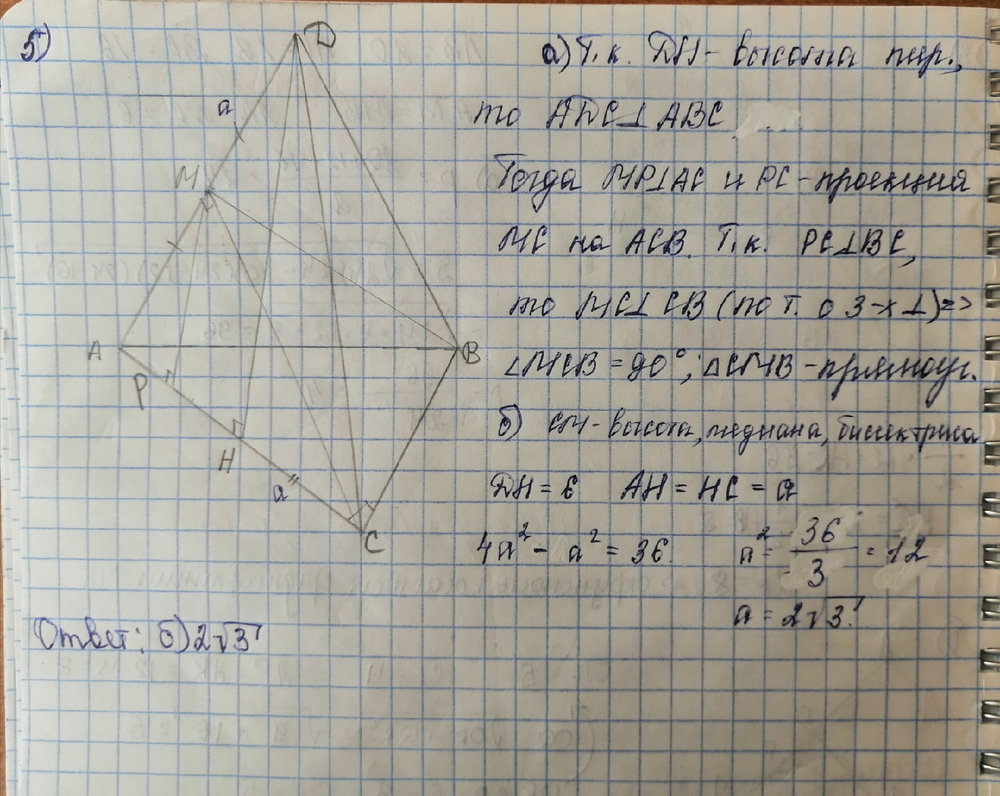 5)
D
a
M
A
B
P
H
a
C
а) Т.к. DH - высота пир.,
то ADC⊥ABC
Тогда MP⊥AC и PC - проекция
MC на ACB. Т.к. PC⊥BC,
то MC⊥CB (по т. о 3-х ⊥) =>
∠MCB = 90°; △CMB - прямоуг.
б) CM - высота, медиана, биссектриса
DH = 6 AH = HC = a
4a² - a² = 36 a² = 36/3 = 12
a = 2√3
Ответ: б) 2√3